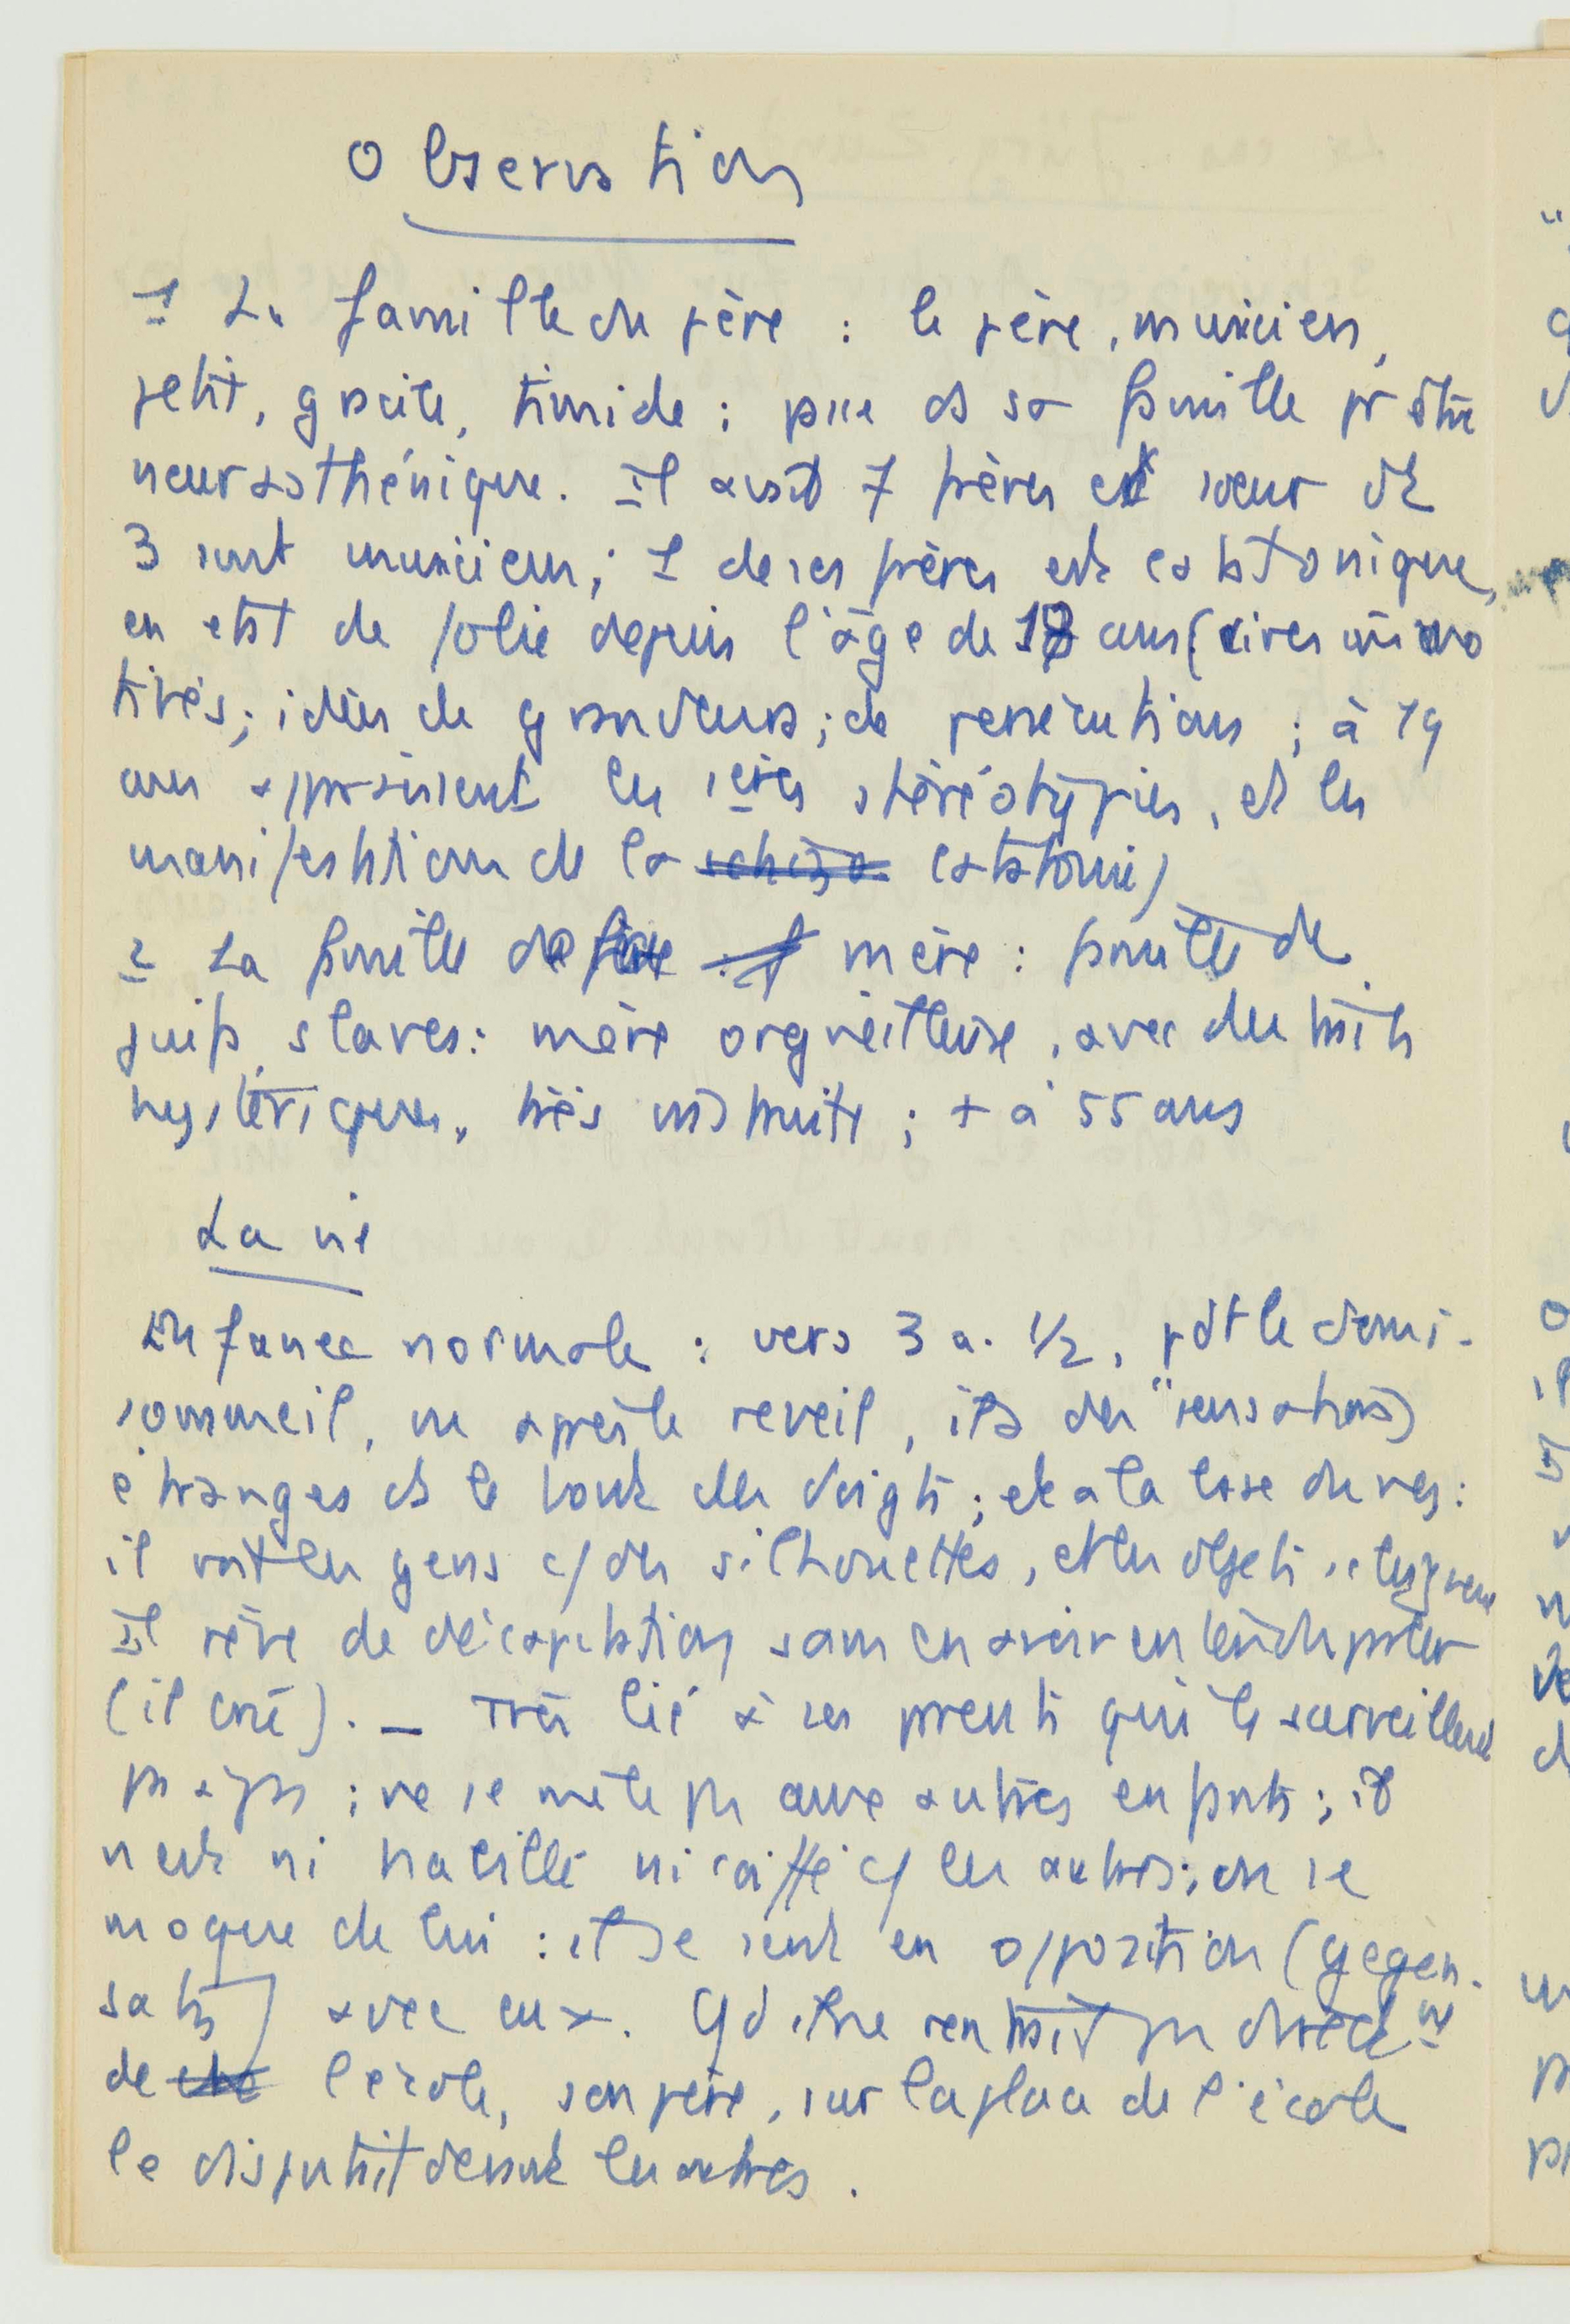 Observation
1 La famille du père : le père, musicien,
petit, gracile, timide ; passe ds sa famille pr être
neurasthénique. Il avait 7 frères et soeur dt
3 sont musiciens ; 1 de ses frères est catatonique,
en etat de folie depuis l'âge de 18 ans (rires immo
tivés ; idées de grandeurs ; de persécutions ; à 19
ans apparaissent les 1ères stéréotypies, et les
manifestations de la schizo catatonie)
2 La famille de mère : famille de
juifs slaves : mère orgueilleuse, avec des traits
hystériques, très instruite ; + à 55 ans
La vie
Enfance normale : vers 3 a. 1/2, pdt le demi-
sommeil, ou après le reveil, il a des "sensations
étranges ds le bout des doigts ; et a la base du nez :
il voit les gens c/ des silhouettes, et les objets
Il rêve de décapitation sans en avoir entendu parler
(il crie). – Très lié à ses parents qui le surveillent
pas à pas ; ne se mêle pas aux autres enfants ; il
n'est ni habillé ni coiffé c/ les autres ; on se
moque de lui : il se sent en opposition (Gegen-
satz) avec eux. Qd il ne rentrait pas directemt
de l'école, son père, sur la place de l'école
le disputait devant les autres.